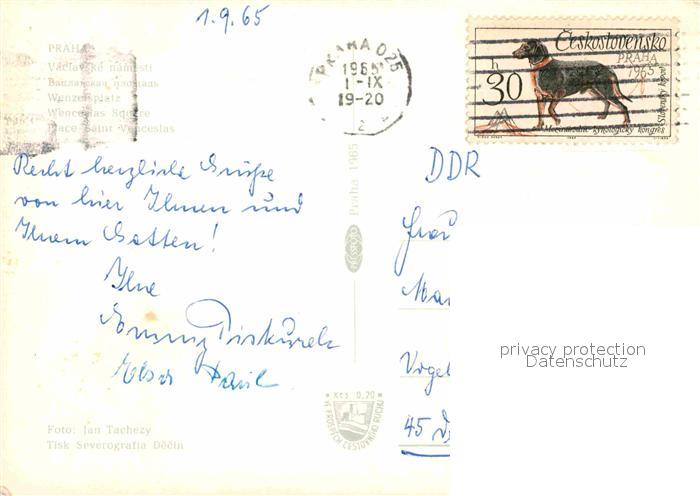 1.9.65
PRAHA
Václavské náměstí
Вацлавская площадь
Wenzelsplatz
Wenceslas Square
Place Saint Venceslas
PRAHA 025
1965
1-IX
19-20
2
Československo
PRAHA
1965
h
30
Mezinárodní kynologický kongres
Slovenský kopov
Recht herzliche Grüße
von hier Ihnen und
Ihrem Gatten!
Ihre
Emmy
Elsa Paul
Praha 1965
PRESSFOTO
DDR
Frau
Vogel
45 D
privacy protection
Datenschutz
Kčs 0,20
VE PROSPĚCH CESTOVNÍHO RUCHU
Foto: Jan Tachezy
Tisk Severografia Děčín